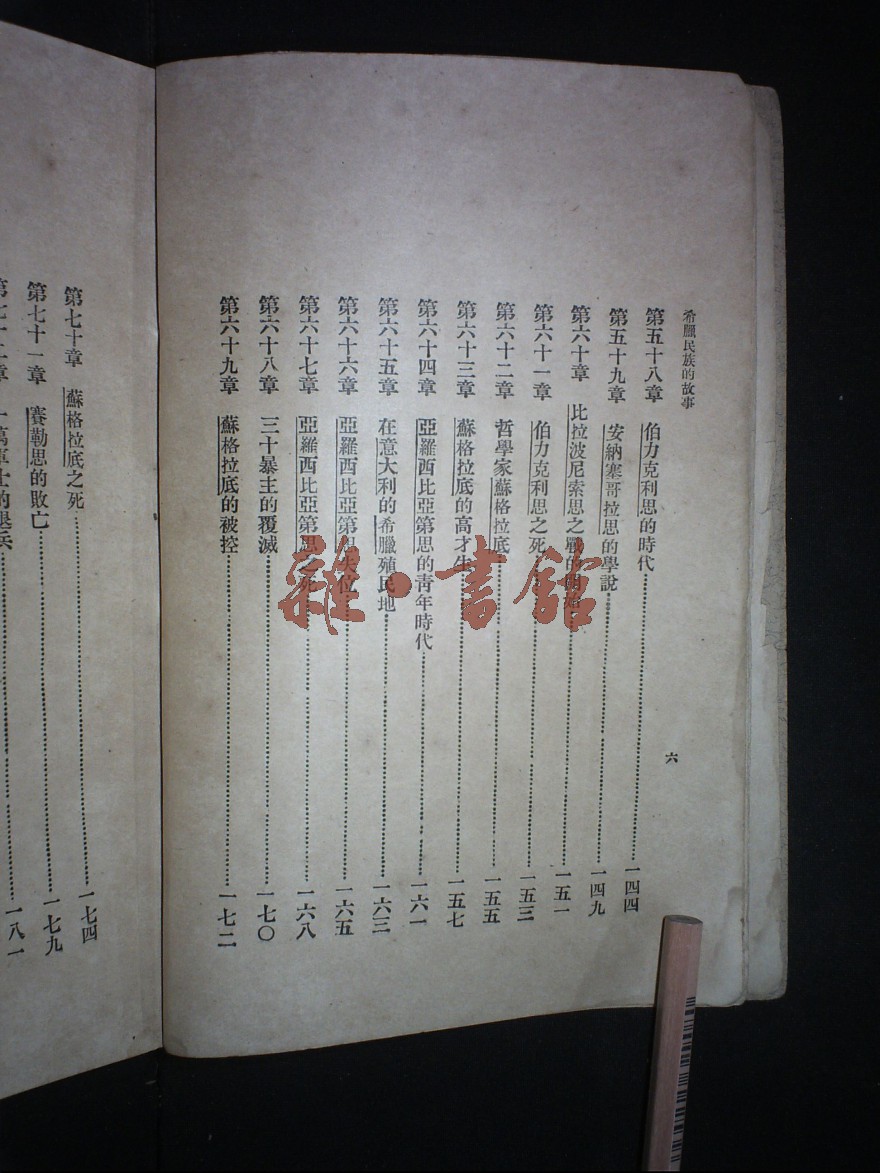 希臘民族的故事
六
第五十八章　伯力克利思的時代……一四四
第五十九章　安納塞哥拉思的學說……一四九
第六十章　比拉波尼索思之戰的開始……一五一
第六十一章　伯力克利思之死……一五三
第六十二章　哲學家蘇格拉底……一五五
第六十三章　蘇格拉底的高才生……一五七
第六十四章　亞羅西比亞第思的靑年時代……一六一
第六十五章　在意大利的希臘殖民地……一六三
第六十六章　亞羅西比亞第思失位……一六五
第六十七章　亞羅西比亞第思之死……一六八
第六十八章　三十暴主的覆滅……一七〇
第六十九章　蘇格拉底的被控……一七二
第七十章　蘇格拉底之死……一七四
第七十一章　賽勒思的敗亡……一七九
第七十二章　一萬軍士的退兵……一八一
雜·書館